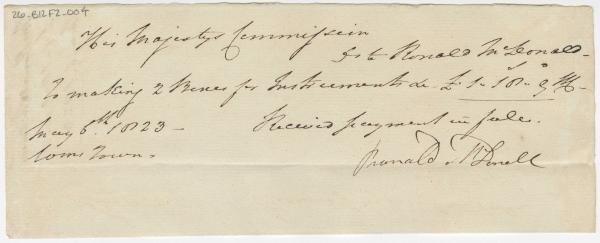 26-B12F2-004
His Majestys Commission
Dr to Ronald McDonald
To making 2 Boxes for Instruments &c £ 1 - 18 - 9
May 6th 1823 - Received payment in full.
Ronald McDonell